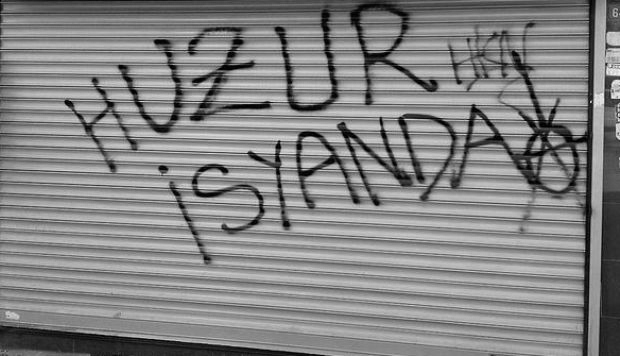 HUZUR
İSYANDA